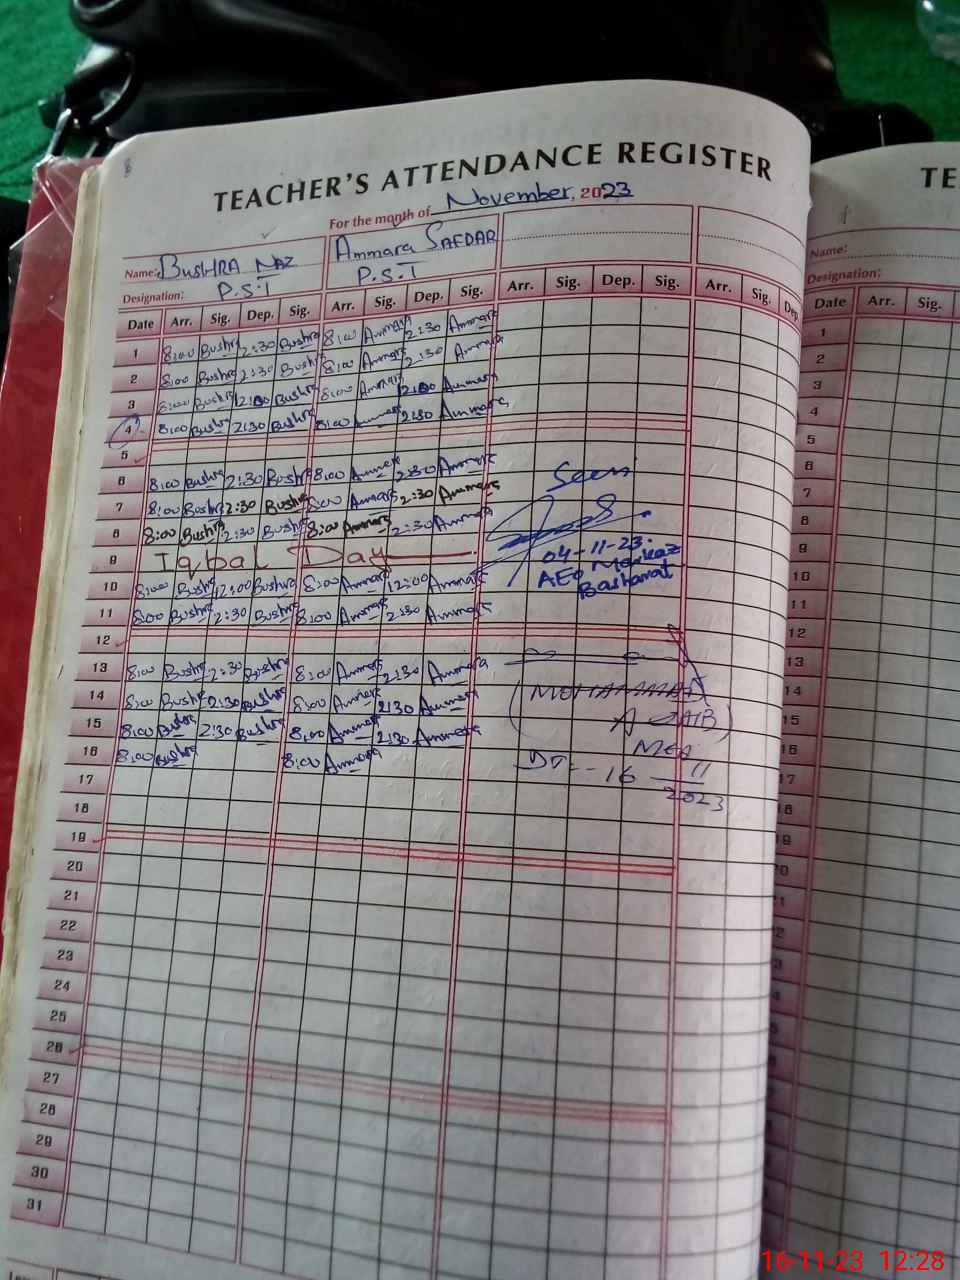 TEACHER'S ATTENDANCE REGISTER
For the month of November, 2023
Name: BUSHRA NAZ Ammara SAFDAR
Designation: P.S.T P.S.T
Date Arr. Sig. Dep. Sig. Arr. Sig. Dep. Sig. Arr. Sig. Dep. Sig. Arr. Sig. Dep.
1 8:00 Bushra 2:30 Bushra 8:00 Ammara 2:30 Ammara
2 8:00 Bushra 2:30 Bushra 8:00 Ammara 2:30 Ammara
3 8:00 Bushra Bushra 8:00 Ammara Ammara
4 8:00 Bushra 2:30 Bushra 8:00 Ammara 2:30 Ammara
5
6 8:00 Bushra 2:30 Bushra 8:00 Ammara 2:30 Ammara
7 8:00 Bushra 2:30 Bushra 8:00 Ammara 2:30 Ammara
8 8:00 Bushra 2:30 Bushra 8:00 Ammara 2:30 Ammara
9 Iqbal Day
10 8:00 Bushra 12:00 Bushra 8:00 Ammara 12:00 Ammara
11 8:00 Bushra 2:30 Bushra 8:00 Ammara 2:30 Ammara
12
13 8:00 Bushra 2:30 Bushra 8:00 Ammara 2:30 Ammara
14 8:00 Bushra 2:30 Bushra 8:00 Ammara 2:30 Ammara
15 8:00 Bushra 2:30 Bushra 8:00 Ammara 2:30 Ammara
16 8:00 Bushra 8:00 Ammara
17
18
19
20
21
22
23
24
25
26
27
28
29
30
31
Seen
04-11-23.
AEO Markaz
Basharat
MEA
DT:- 16
11
2023
TE
Name:
Designation:
Date Arr. Sig.
1
2
3
4
5
6
7
8
9
10
11
12
13
14
15
16
17
18
19
16-11-23 12:28